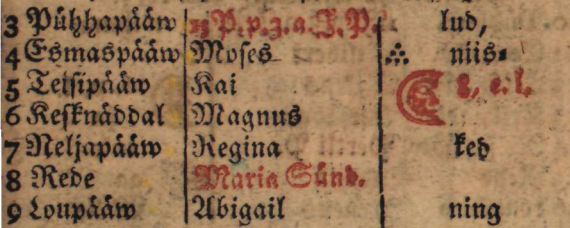 3 Pühhapääw 13 P. p. 3. a. J. P. lud,
4 Esmaspääw Moses niis⸗
5 Teisipääw Kai 8, e. l.
6 Keſknäddal Magnus
7 Neljapääw Regina ked
8 Rede Maria Sünd.
9 Loupääw Abigail ning